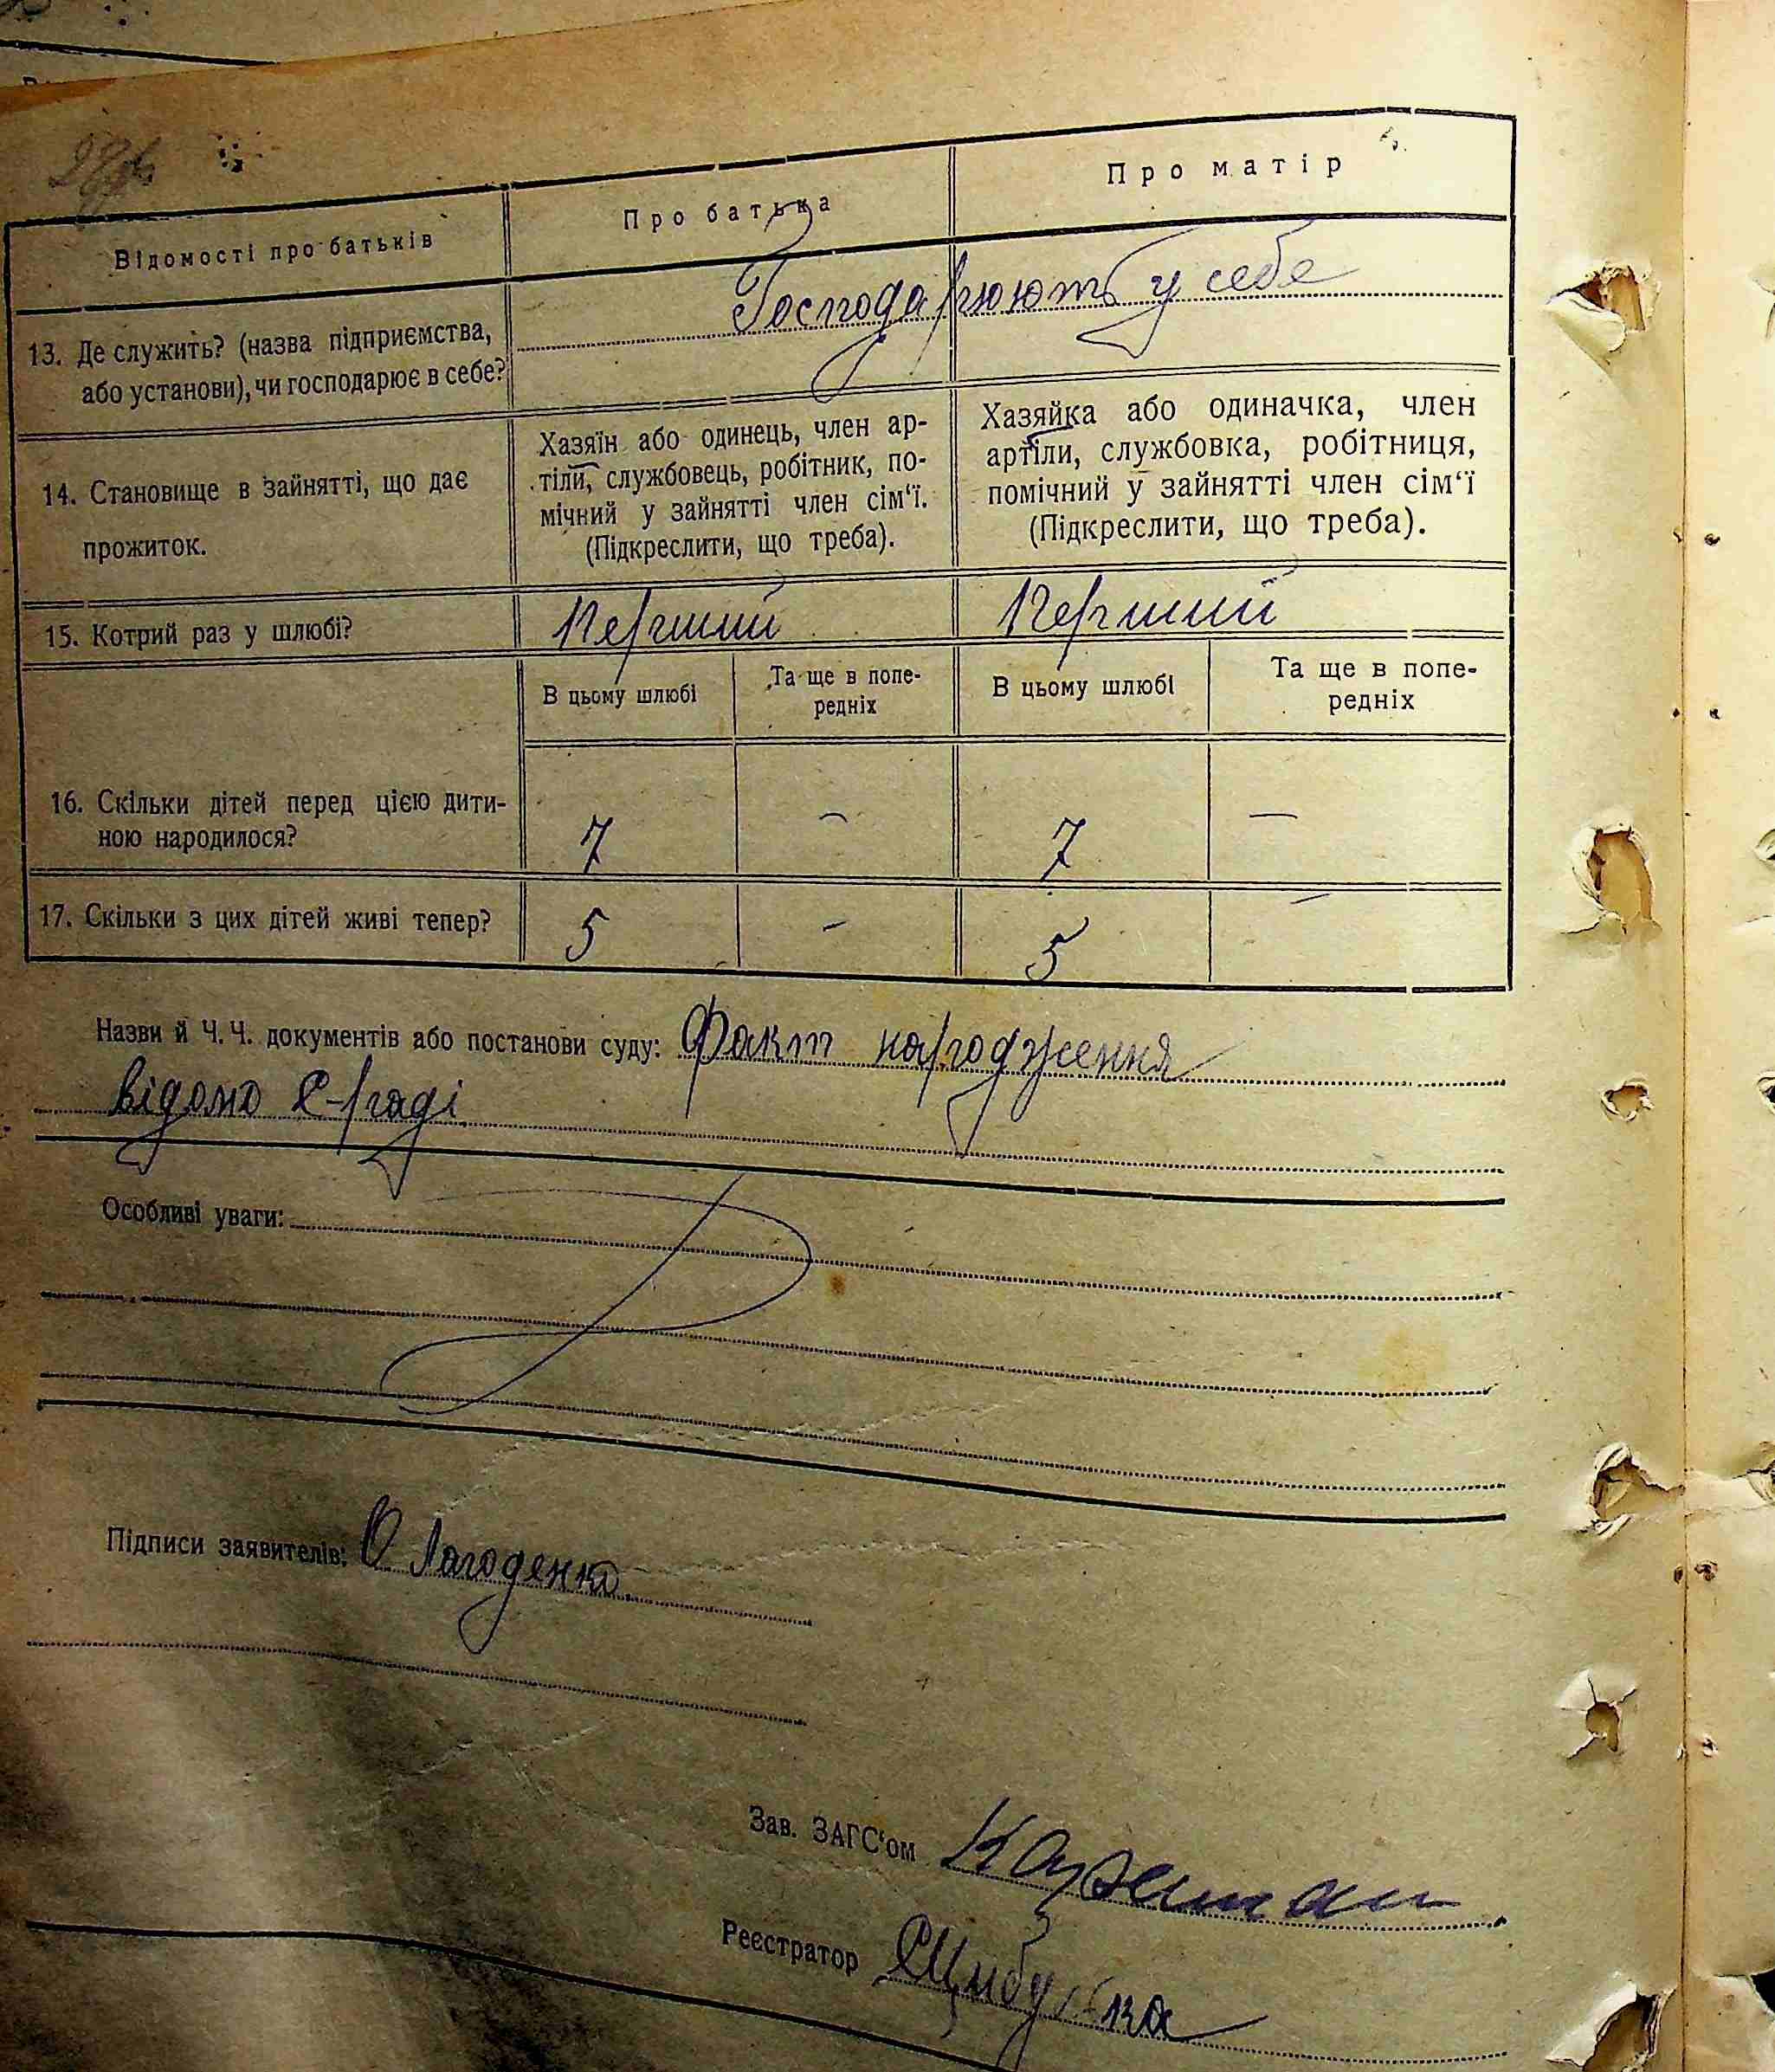 Відомості про батьків
Про батька
Про матір
13. Де служить? (назва підприємства,
або установи), чи господарює в себе?
Господарюють у себе
14. Становище в зайнятті, що дає
прожиток.
Хазяїн або одинець, член ар-
тіли, службовець, робітник, по-
мічний у зайнятті член сім‘ї.
(Підкреслити, що треба).
Хазяйка або одиначка, член
артіли, службовка, робітниця,
помічний у зайнятті член сім‘ї
(Підкреслити, що треба).
15. Котрий раз у шлюбі?
Перший
Перший
В цьому шлюбі
Та ще в попе-
редніх
В цьому шлюбі
Та ще в попе-
редніх
16. Скільки дітей перед цією дити-
ною народилося?
7
—
7
—
17. Скільки з цих дітей живі тепер?
5
—
5
—
Назви й Ч. Ч. документів або постанови суду: Факт народження
відомо С-раді
Особливі уваги:
Підписи заявителів: О Лагоденко
Зав. ЗАГС‘ом
Реєстратор